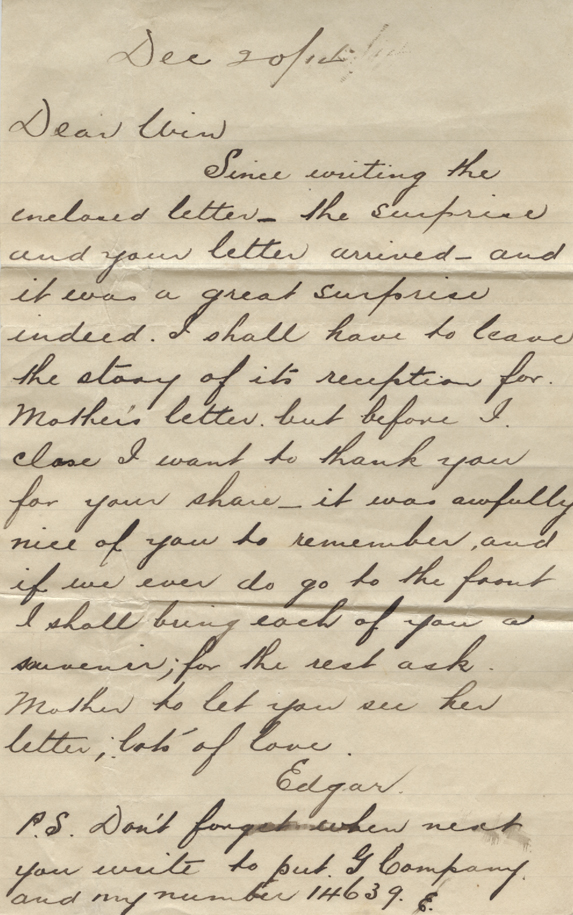 Dec 20/14
Dear Win
Since writing the
enclosed letter – the surprise
and your letter arrived – and
it was a great surprise
indeed. I shall have to leave
the story of its reception for.
Mother's letter. but before I.
close I want to thank you
for your share – it was awfully
nice of you to remember, and
if we ever do go to the front
I shall bring each of you a
souvenir; for the rest ask.
Mother to let you see her
letter; lots of love.
Edgar.
P.S. Don't forget when next
you write to put. G Company.
and my number 14639. E.